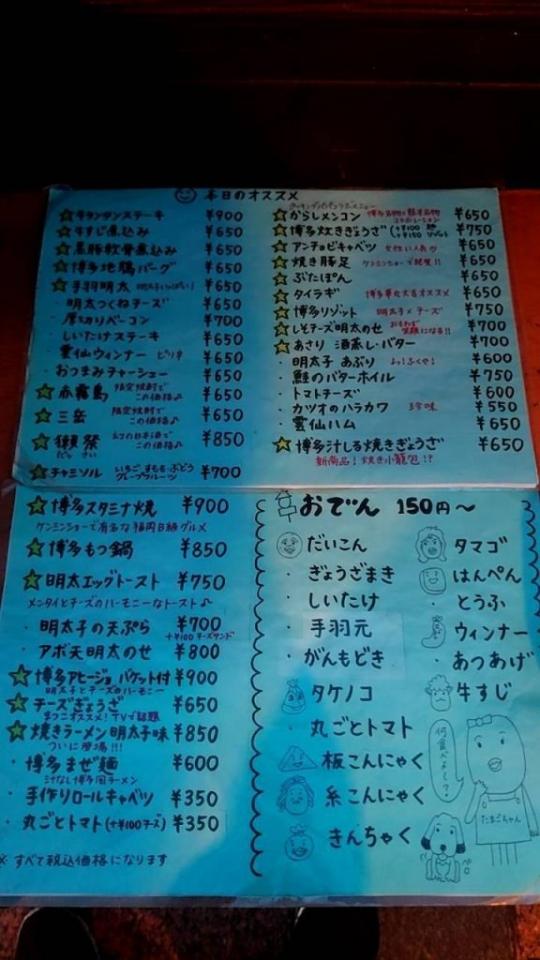 本日のオススメ
牛タンタンステーキ ¥900
牛すじ煮込み ¥650
黒豚軟骨煮込み ¥650
博多地鶏バーグ ¥650
手羽明太 ¥650
明太つくねチーズ ¥650
厚切りベーコン ¥700
しいたけステーキ ¥650
雲仙ウィンナー ピリ辛 ¥650
おつまみチャーシュー ¥650
赤霧島 限定焼酎で この価格♪ ¥650
三岳 限定焼酎で この価格♪ ¥650
獺祭 だっさい 幻の日本酒で この価格♪ ¥850
チャミソル いちご すもも ぶどう グレープフルーツ ¥700
からしメンコン ¥650
博多炊きぎょうざ ¥750
アンチョビキャベツ 女性に人気♡ ¥650
焼き豚足 ケンミンショーで絶賛!! ¥650
ぶたぽん ¥650
タイラギ ¥650
博多リゾット 明太子×チーズ ¥750
しそチーズ明太のせ ¥700
あさり 酒蒸し・バター ¥700
明太子 あぶり ¥600
鮭のバターホイル ¥750
トマトチーズ ¥600
カツオのハラカワ 珍味 ¥550
雲仙ハム ¥650
博多汁しる焼きぎょうざ ¥650
新商品!焼き小籠包!?
博多スタミナ焼 ¥900
ケンミンショーで有名な福岡B級グルメ
博多もつ鍋 ¥850
明太エッグトースト ¥750
メンタイとチーズのハーモニーなトースト♪
明太子の天ぷら ¥700
+¥100チーズサンド
アボ天明太のせ ¥800
博多アヒージョ バケット付 ¥900
明太子とチーズのハーモニー
チーズぎょうざ ¥650
マツコオススメ!TVで話題
焼きラーメン明太子味 ¥850
ついに登場!!!
博多まぜ麺 ¥600
汁なし博多風ラーメン
手作りロールキャベツ ¥350
丸ごとトマト(+¥100チーズ) ¥350
※すべて税込価格になります
おでん 150円〜
だいこん
ぎょうざまき
しいたけ
手羽元
がんもどき
タケノコ
丸ごとトマト
板こんにゃく
糸こんにゃく
きんちゃく
タマゴ
はんぺん
とうふ
ウィンナー
あつあげ
牛すじ
何食べよ〜?
たまごちゃん